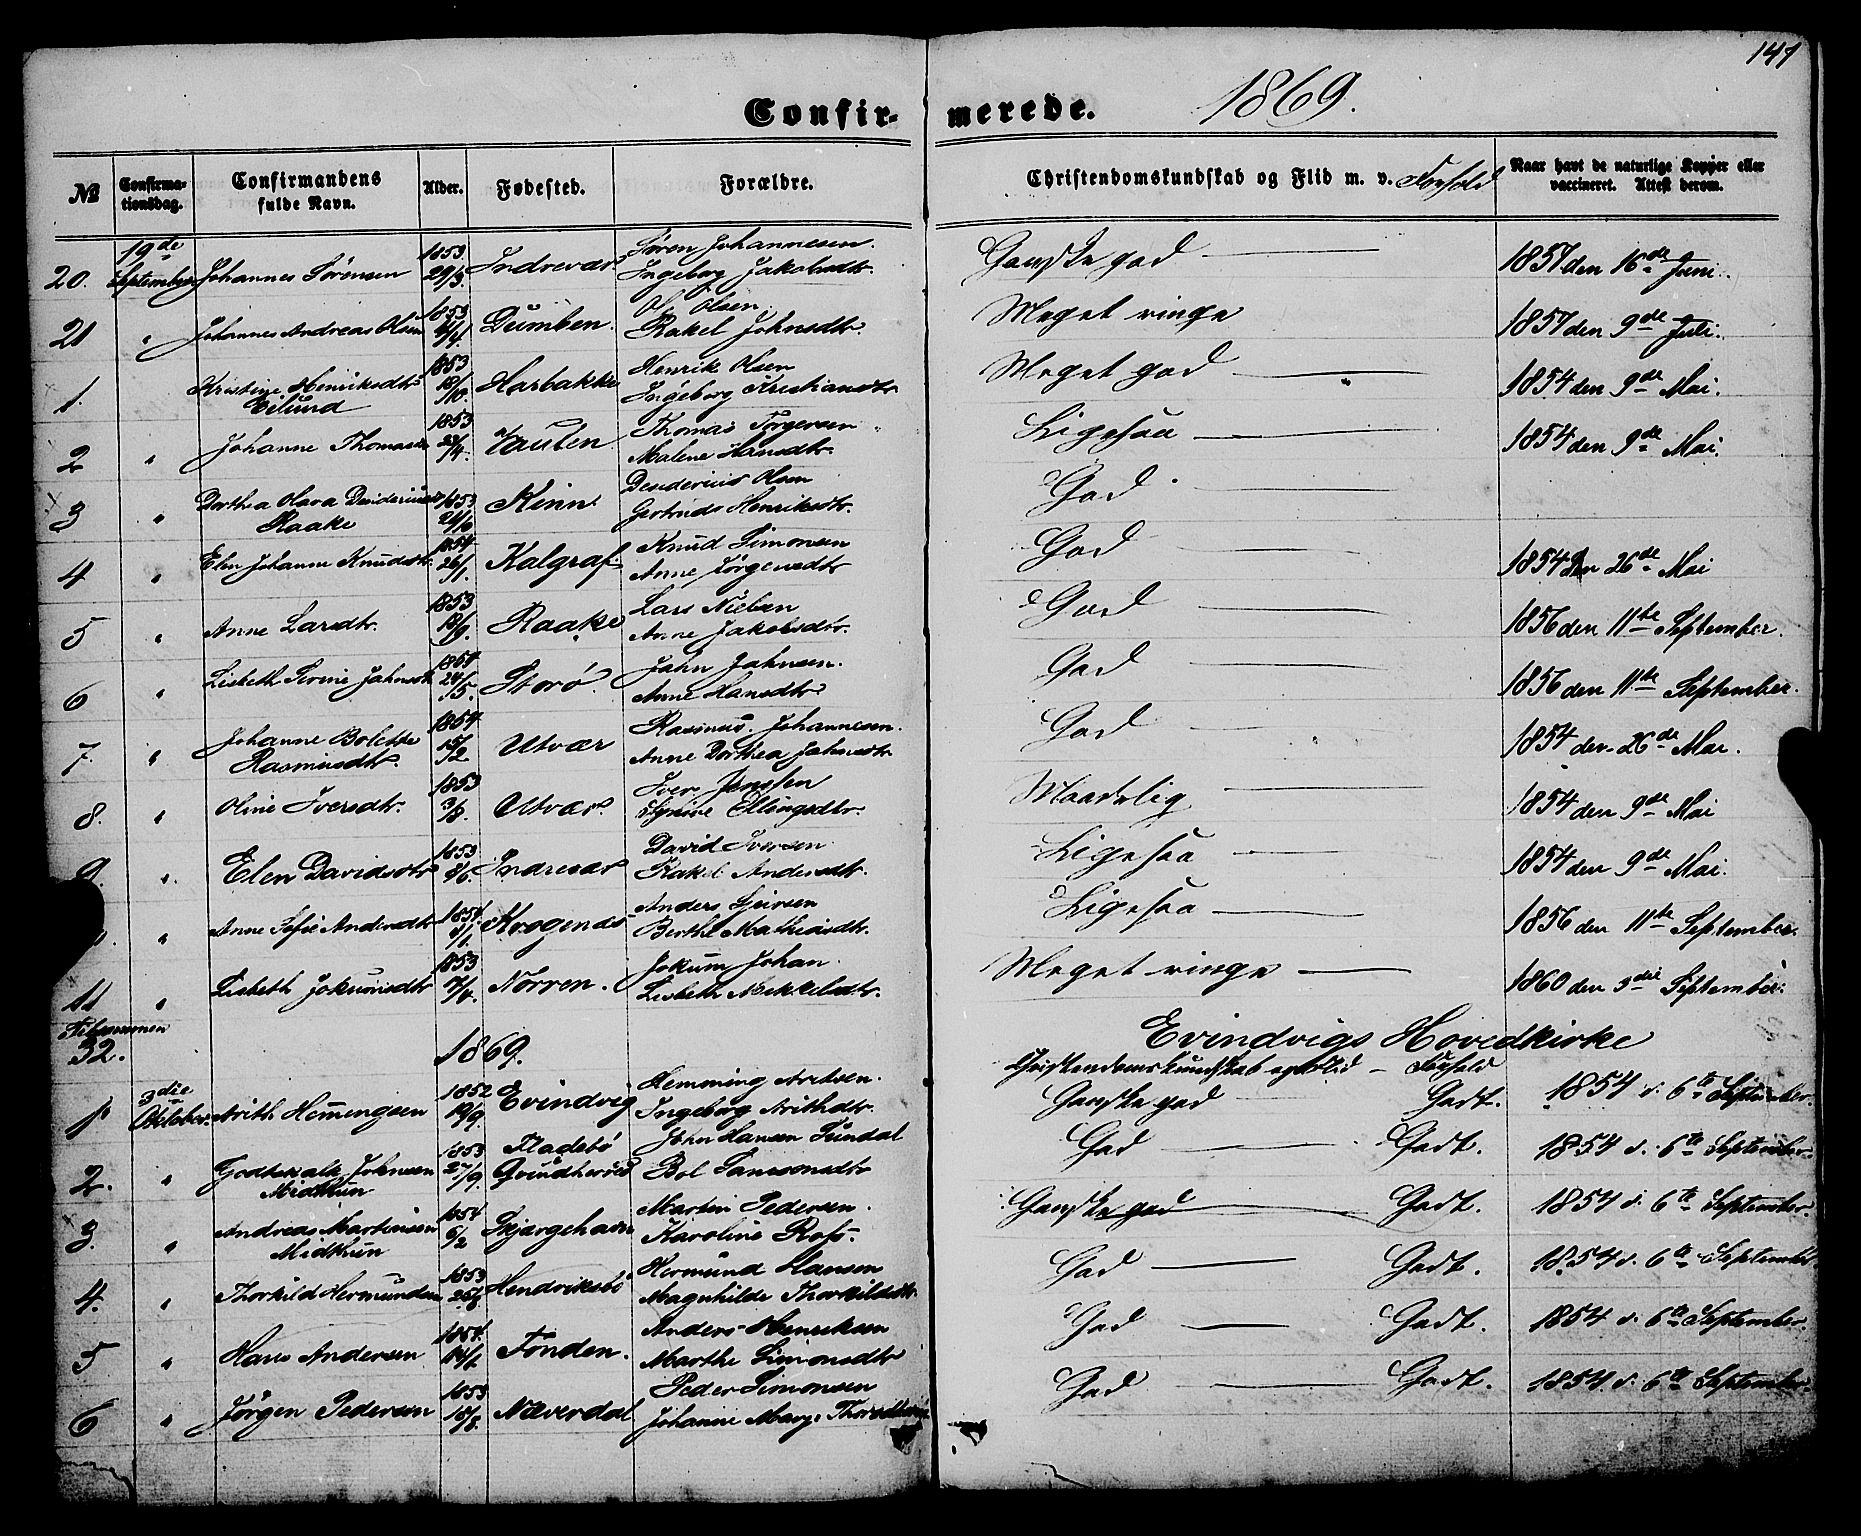 141
Confirmerede. 1869.
№ Confirmationsdag. Confirmandens fulde Navn. Alder. Fødested. Forældre. Christendomskundskab og Flid m. v. Forhold Naar havt de naturlige Kopper eller vaccineret. Attest derom.
20. 19de September Johannes Sørensen 1853 29/3. Indrevær Søren Johannesen. Ingeborg Jakobsdtr. Ganske god 1857 den 16de Juni.
21 " Johannes Andreas Olsen 1853 Dumben. Ole Olsen Rakel Johnsdtr. Meget ringe 1857 den 9de Juli.
1. Kristine Henriksdtr Eilund 1853 Harbakke Henrik Olsen Ingeborg Kristiansdtr Meget god " 1854 den 9de Mai.
2 " Johanne Thomasdtr 1853 Vaulen Thomas Torgersen Malene Hansdtr. Ligesaa 1854 den 9de Mai.
3 " Dorthea Olava Desideriusdtr Raake 1853 Kinn Desiderius Olsen Gertrude Henriksdtr. God
4 " Elen Johanne Knudsdtr. 1854 26/1. Kalgraf Knud Simonsen Anne Jørgensdtr God 1854 den 26de Mai
5 " Anne Larsdtr. 1853 Raake Lars Nielsen Anne Jakobsdtr. God 1856 den 11te September.
6 " Lisbeth Serine Jahnsdtr 1854 24/5. Storø. Jahn Jahnsen. Anne Hansdtr God 1856 den 11te September.
7. " Johanne Bolette Rasmusdtr. 1854 15/2 Utvær Rasmus Johannesen. Anne Dorthea Jahnsdtr. God 1854 den 26de Mai.
8. " Oline Iversdtr. 1853 3/8. Utvær. Iver Jenssen Synive Ellingsdtr. Maadelig 1854 den 9de Mai
9. " Elen Davidsdtr 1853 Indrevær David Iversen Rakel Andersdtr. Ligesaa 1854 den 9de Mai.
" Anne Sofie Andersdtr 1854 Krogenæs Anders Berthe Mathiasdtr. Ligesaa 1856 den 11te September.
11 " Lisbeth Jokumsdtr 1853 7/4. Norren. Jokum Johan. Lisbeth Mikkelsdtr. Meget ringe 1860 den 3die September.
Tilsammen 32. 1869. Evindvigs Hovedkirke
Christendomskundskab og Flid – Forhold
1 3die Oktober. Arith Hemmengsen 1852 19/9. Evindvig Hemming Arithsen. Ingeborg Arithdtr. Ganske god Godt. 1854 d. 6te September.
2. " Godtskalk Johnsen Midthun 1853 27/9. Fladebø John Hansen Sundal Bol Samsonsdtr God Godt. 1854 d. 6te September.
3. " Andreas Martinsen Midthun 1854 6/2 Skjærgehavn Martin Pedersen. Karoline Rofs. Ganske god Godt. 1854 d. 6te September.
4. " Thorkild Hermundsen 1853 Hendriksbø Hermund Hansen Magnhilde Thorkildsdtr God Godt. 1854 d. 6te September
5 " Hans Andersen 1854. Fonden. Anders Henriksen Marthe Simonsdtr God Godt. 1854 d. 6te September.
6 " Jørgen Pedersen 1853 18/8. Næverdal Peder Simonsen Johanne Marg. God Godt. 1854 d. 6te September.